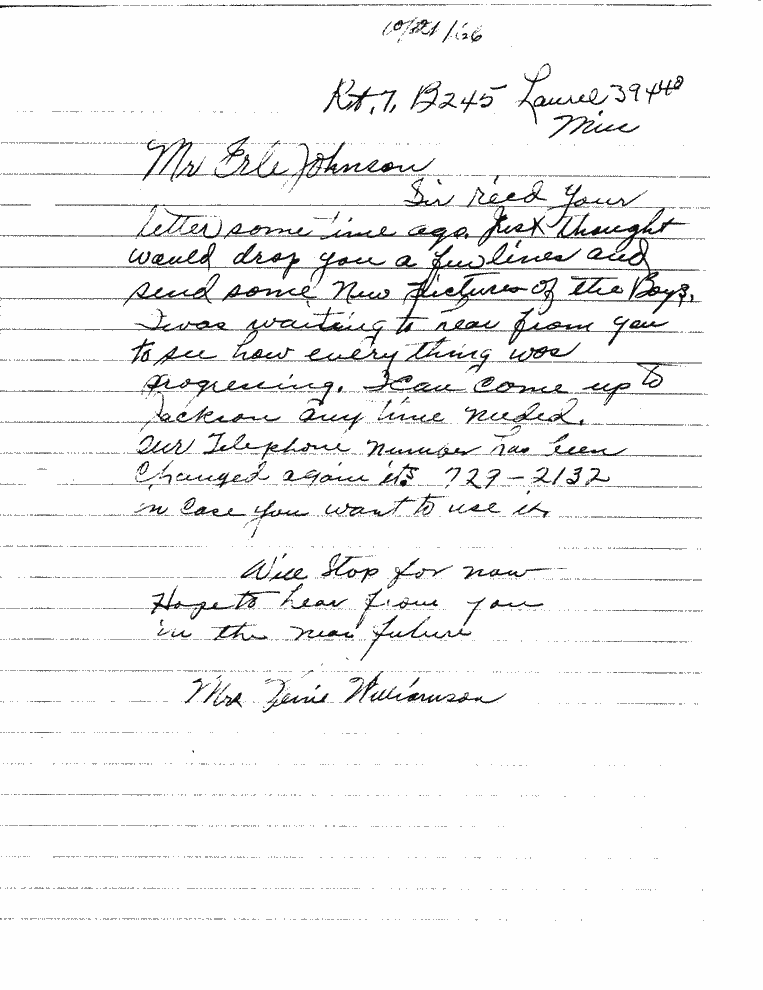 10/21/66
Rt. 7, B245 Laurel 39440
Miss
Mr Erle Johnson
Sir Recd your
letter some time ago. Just thought
would drop you a few lines and
send some New pictures of the Boys.
I was waiting to hear from you
to see how every thing was
progressing. I can come up to
Jackson any time needed.
Our Telephone number has been
Changed again its 729-2132
in Case you want to use it.
Will Stop for now
Hope to hear from you
in the near future
Mrs Williamson